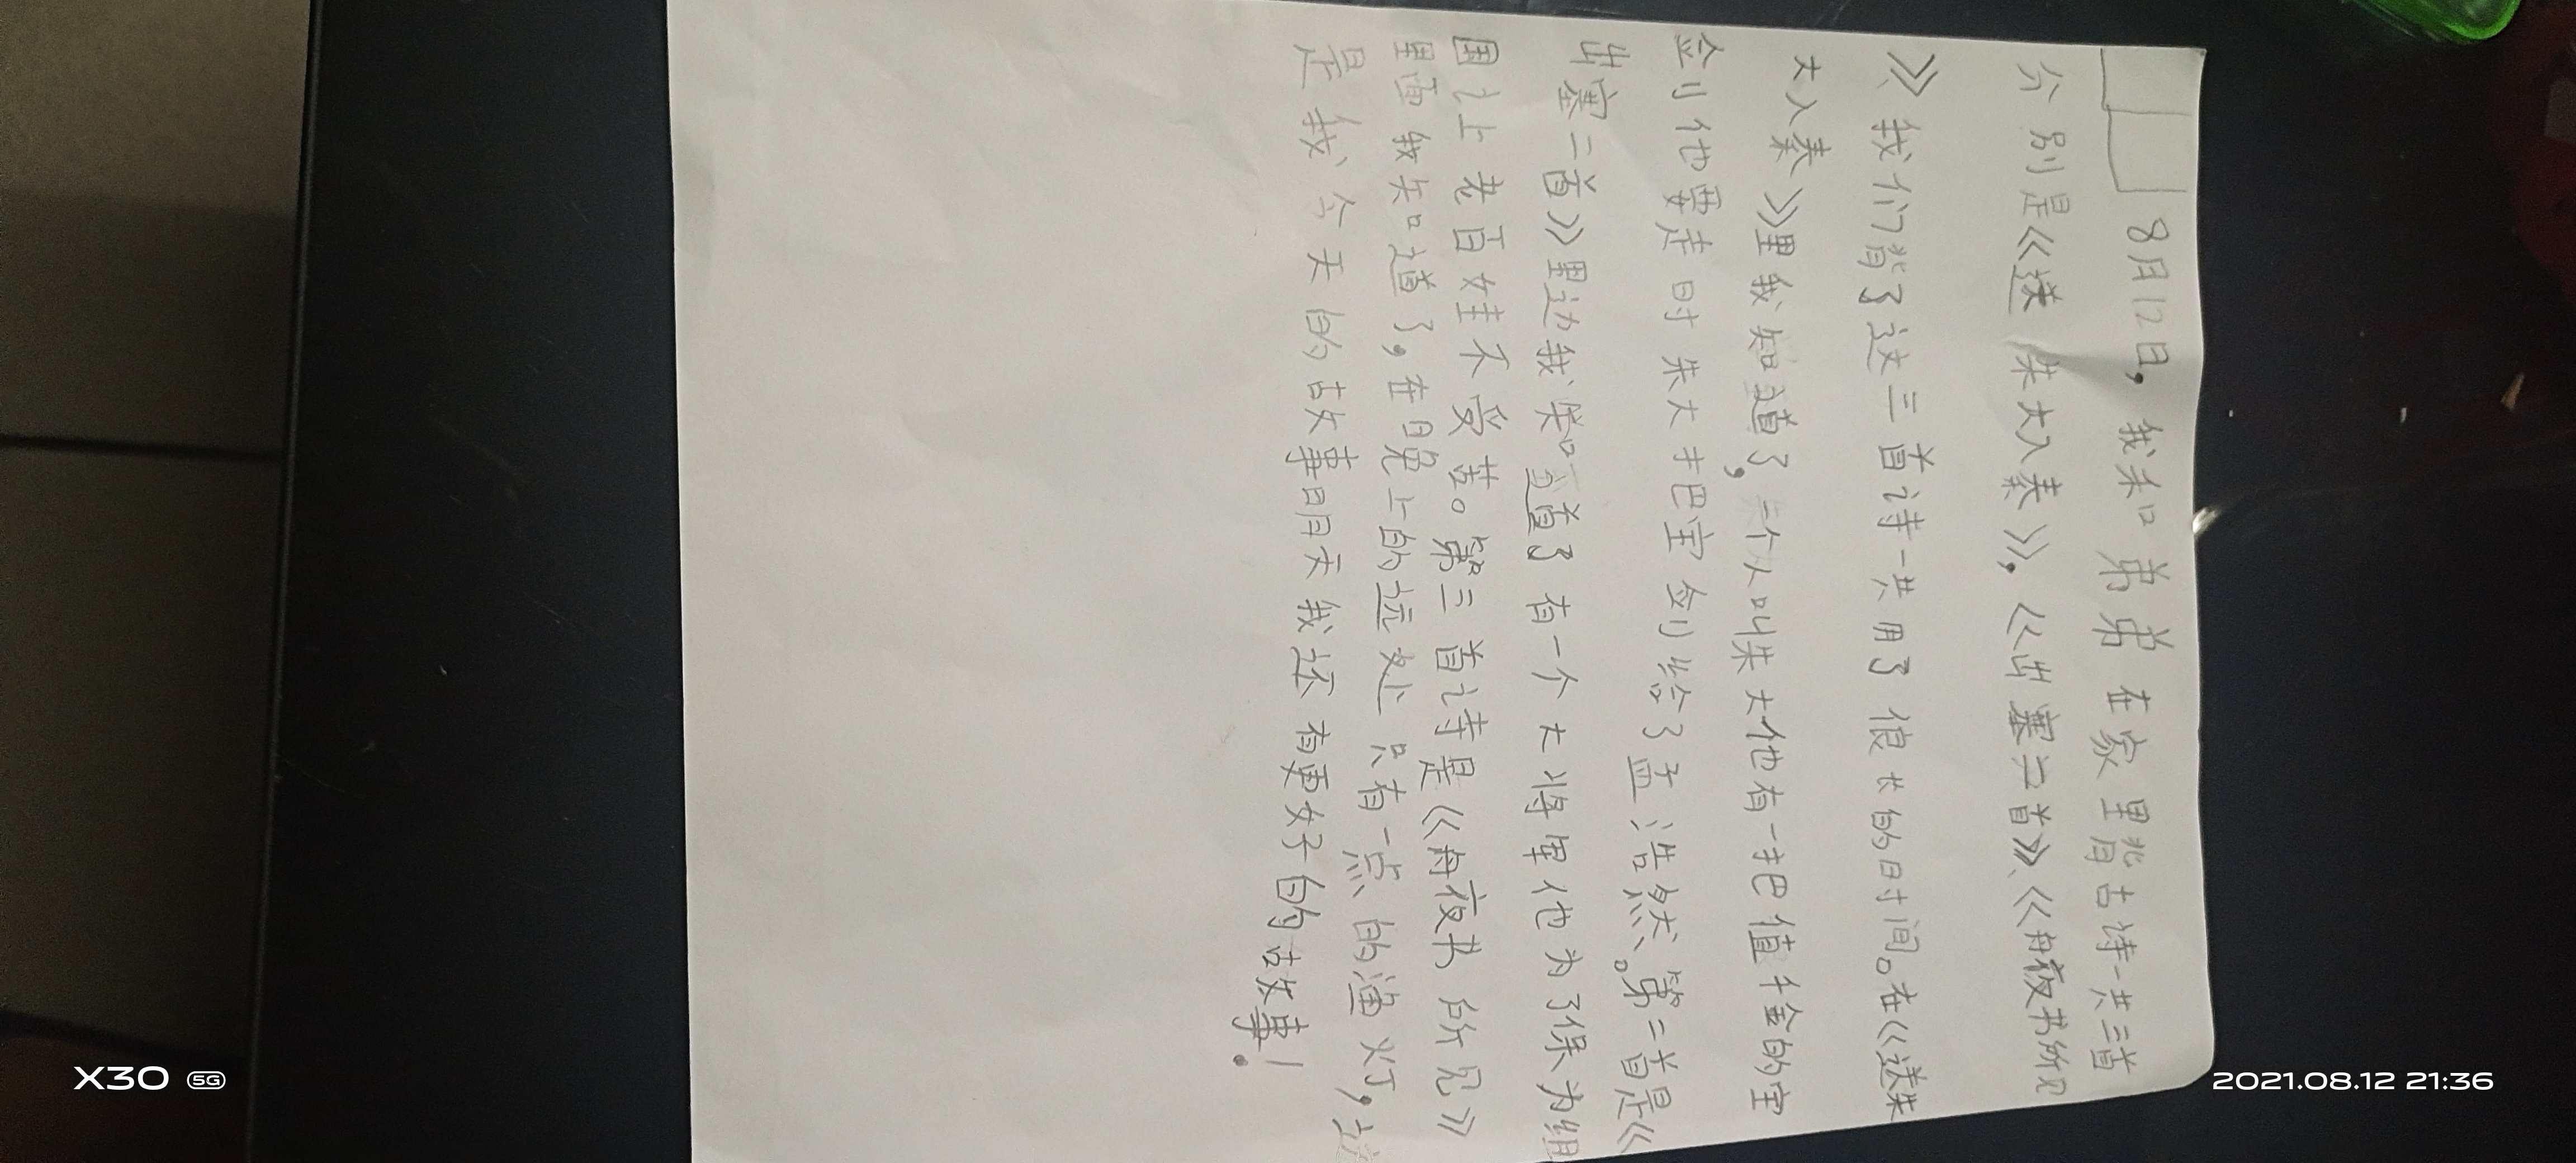 8月12日，我和弟弟在家里背古诗一共三首
分别是《送朱大入秦》，《出塞二首》《舟夜书所见
》我们背了这三首诗一共用了很长的时间。在《送朱
大入秦》里我知道了，一个人叫朱大他有一把值千金的宝
剑他要走时朱大把宝剑给了孟浩然。第二首是《
出塞二首》里边我知道了有一个大将军他为了保为组
国让老百姓不受苦。第三首诗是《舟夜书所见》
里面我知道了，在晚上的远处只有一点的渔灯，这
是我今天的故事明天我还有更好的故事！
X30 5G
2021.08.12 21:36